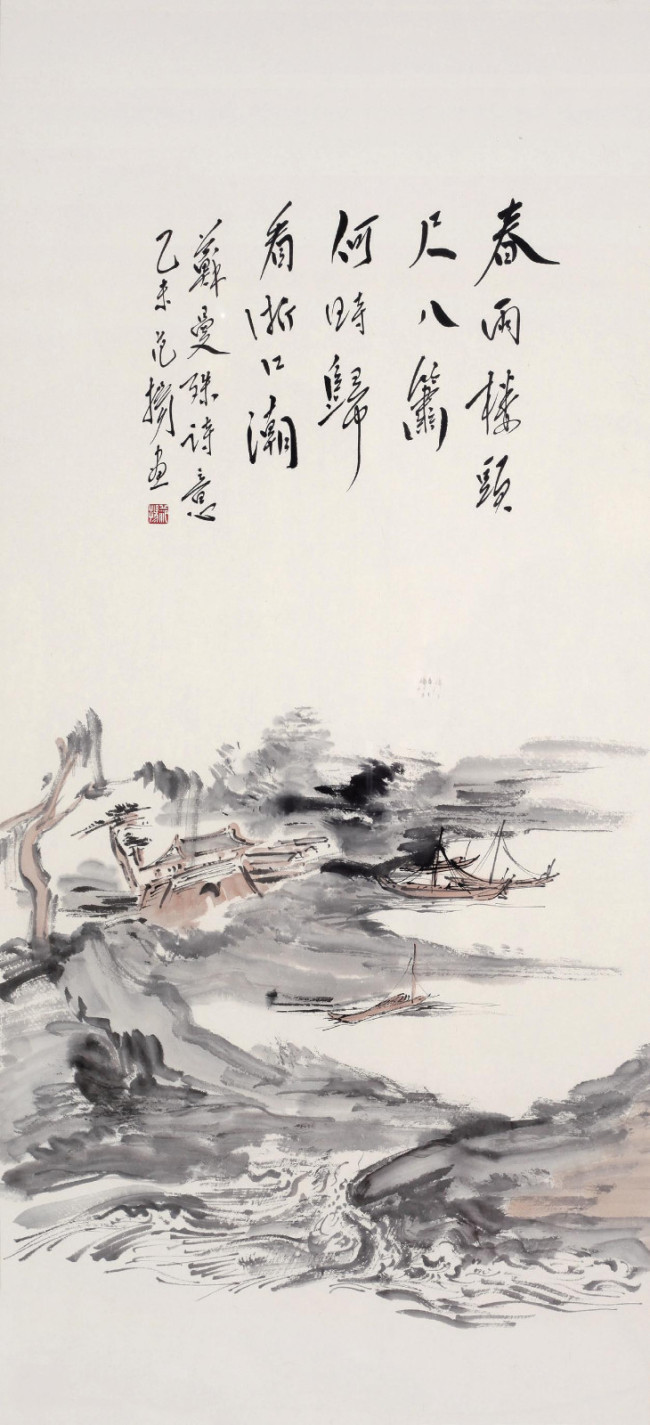 春雨楼頭
尺八簫
何時歸
看浙江潮
蘇曼殊詩意
乙未范揚畫